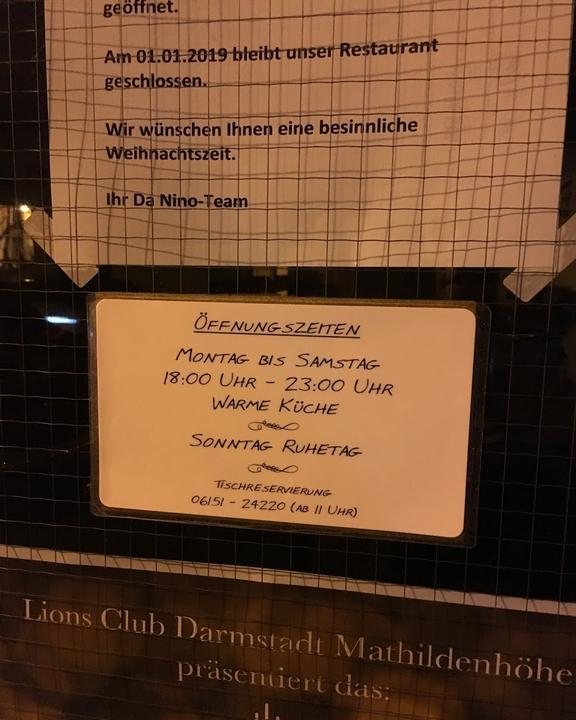 geöffnet.
Am 01.01.2019 bleibt unser Restaurant
geschlossen.
Wir wünschen Ihnen eine besinnliche
Weihnachtszeit.
Ihr Da Nino-Team
ÖFFNUNGSZEITEN
MONTAG BIS SAMSTAG
18:00 UHR - 23:00 UHR
WARME KÜCHE
SONNTAG RUHETAG
TISCHRESERVIERUNG
06151 - 24220 (AB 11 UHR)
Lions Club Darmstadt Mathildenhöhe
präsentiert das: